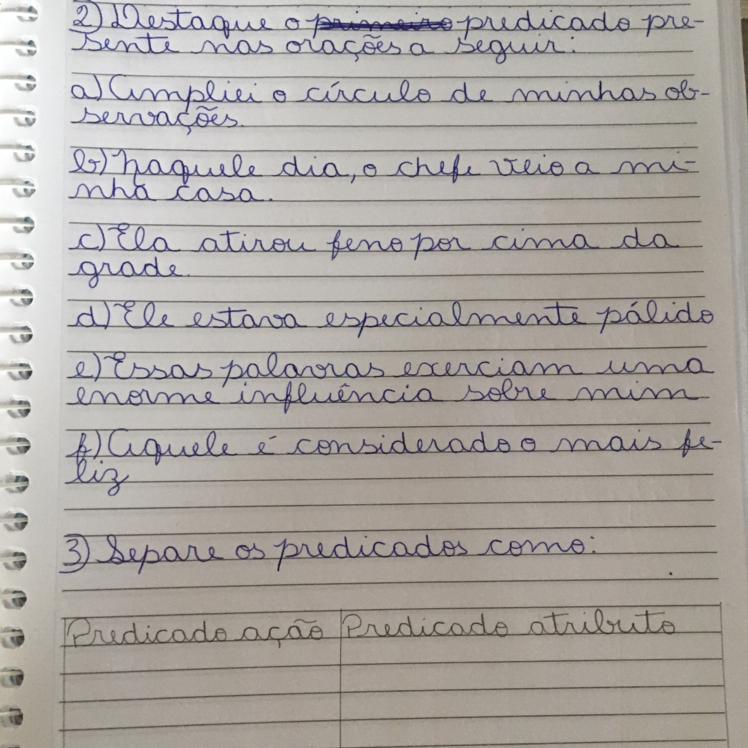 2) Destaque o primeiro predicado pre-
sente nas orações a seguir:
a) Ampliei o círculo de minhas ob-
servações.
b) Naquele dia, o chefe veio a mi-
nha casa.
c) Ela atirou feno por cima da
grade.
d) Ele estava especialmente pálido
e) Essas palavras exerciam uma
enorme influência sobre mim
f) Aquele é considerado o mais fe-
liz
3) Separe os predicados como:
Predicado ação Predicado atributo